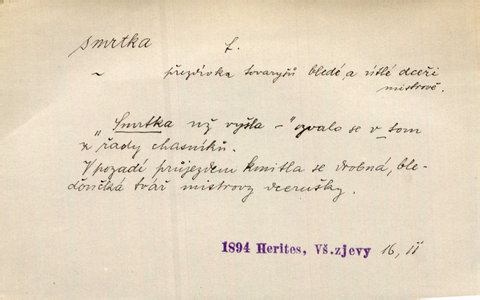 smrtka f.
~ přezdívka tovaryšů bledé, a útlé dceři
mistrově.
„Smrtka už vyšla –“ ozvalo se v tom
z řady chasníků.
V pozadí průjezdem kmitla se drobná, ble-
doučká tvář mistrovy dcerušky.
1894 Herites, Vš.zjevy 16, II